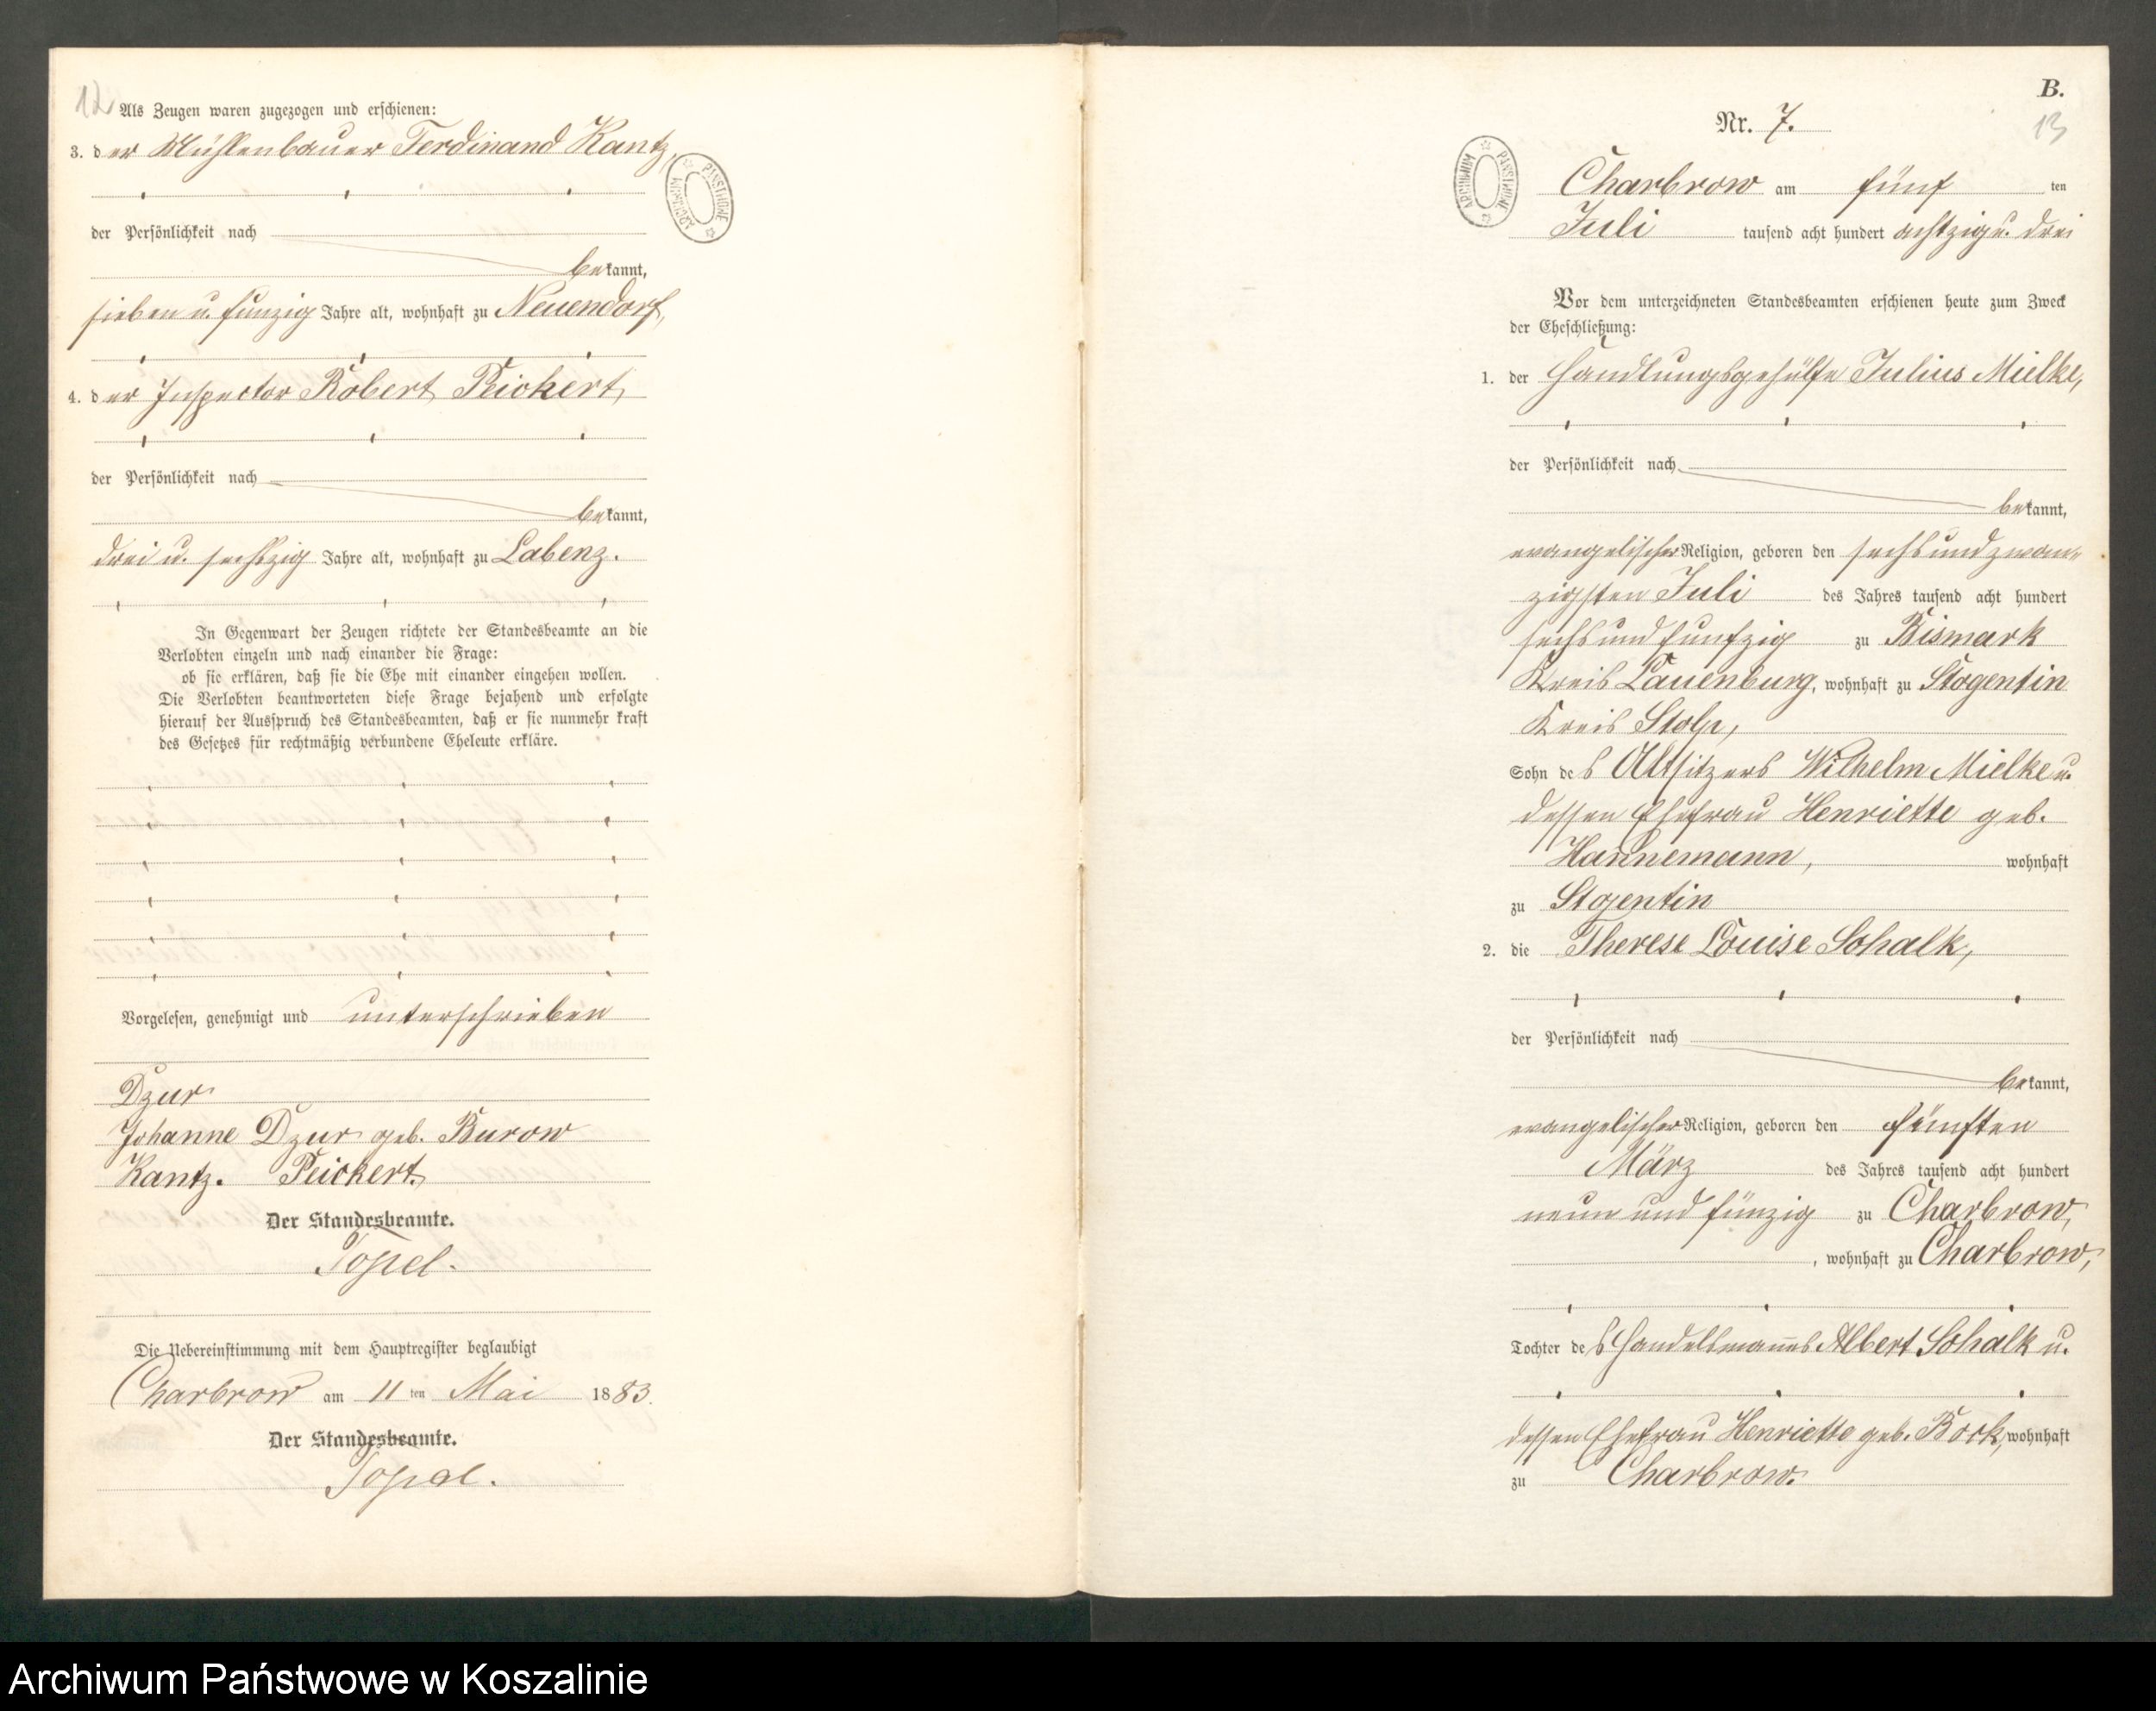 12
Als Zeugen waren zugezogen und erschienen:
3. der Mühlenbauer Ferdinand Kantz,
ARCHIWUM PAŃSTWOWE
der Persönlichkeit nach
bekannt,
sieben u. funzig Jahre alt, wohnhaft zu Neuendorf,
4. der Inspector Robert Peickert,
der Persönlichkeit nach
bekannt,
drei u. sechszig Jahre alt, wohnhaft zu Labenz.
In Gegenwart der Zeugen richtete der Standesbeamte an die
Verlobten einzeln und nach einander die Frage:
ob sie erklären, daß sie die Ehe mit einander eingehen wollen.
Die Verlobten beantworteten diese Frage bejahend und erfolgte
hierauf der Ausspruch des Standesbeamten, daß er sie nunmehr kraft
des Gesetzes für rechtmäßig verbundene Eheleute erkläre.
Vorgelesen, genehmigt und unterschrieben
Dzur
Johanne Dzur geb. Burow
Kantz. Peickert.
Der Standesbeamte.
Topel.
Die Uebereinstimmung mit dem Hauptregister beglaubigt
Charbrow am 11 ten Mai 1883.
Der Standesbeamte.
Topel.
B.
13
Nr. 7.
ARCHIWUM PAŃSTWOWE
Charbrow am fünf ten
Juli tausend acht hundert achtzig u. drei
Vor dem unterzeichneten Standesbeamten erschienen heute zum Zweck
der Eheschließung:
1. der Handlungsgehülfe Julius Mielke,
der Persönlichkeit nach
bekannt,
evangelischer Religion, geboren den sechsundzwan-
zigsten Juli des Jahres tausend acht hundert
sechsundfunfzig zu Bismark
Kreis Lauenburg, wohnhaft zu Stogentin
Kreis Stolp,
Sohn des Altsitzers Wilhelm Mielke u.
dessen Ehefrau Henriette geb.
Hannemann, wohnhaft
zu Stogentin
2. die Therese Louise Schalk,
der Persönlichkeit nach
bekannt,
evangelischer Religion, geboren den fünften
März des Jahres tausend acht hundert
neun und fünzig zu Charbrow,
, wohnhaft zu Charbrow,
Tochter des Handelsmannes Albert Schalk u.
dessen Ehefrau Henriette geb. Bock, wohnhaft
zu Charbrow.
Archiwum Państwowe w Koszalinie